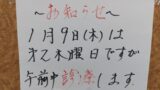 ～お知らせ～
1月9日(木)は
第2木曜日ですが
午前中診療します。